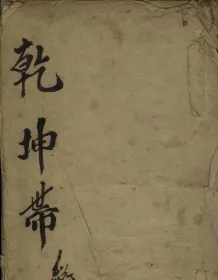 乾坤帶